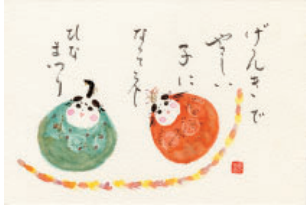 げんきで
やさしい
子に
なってネ
ひな
まつり